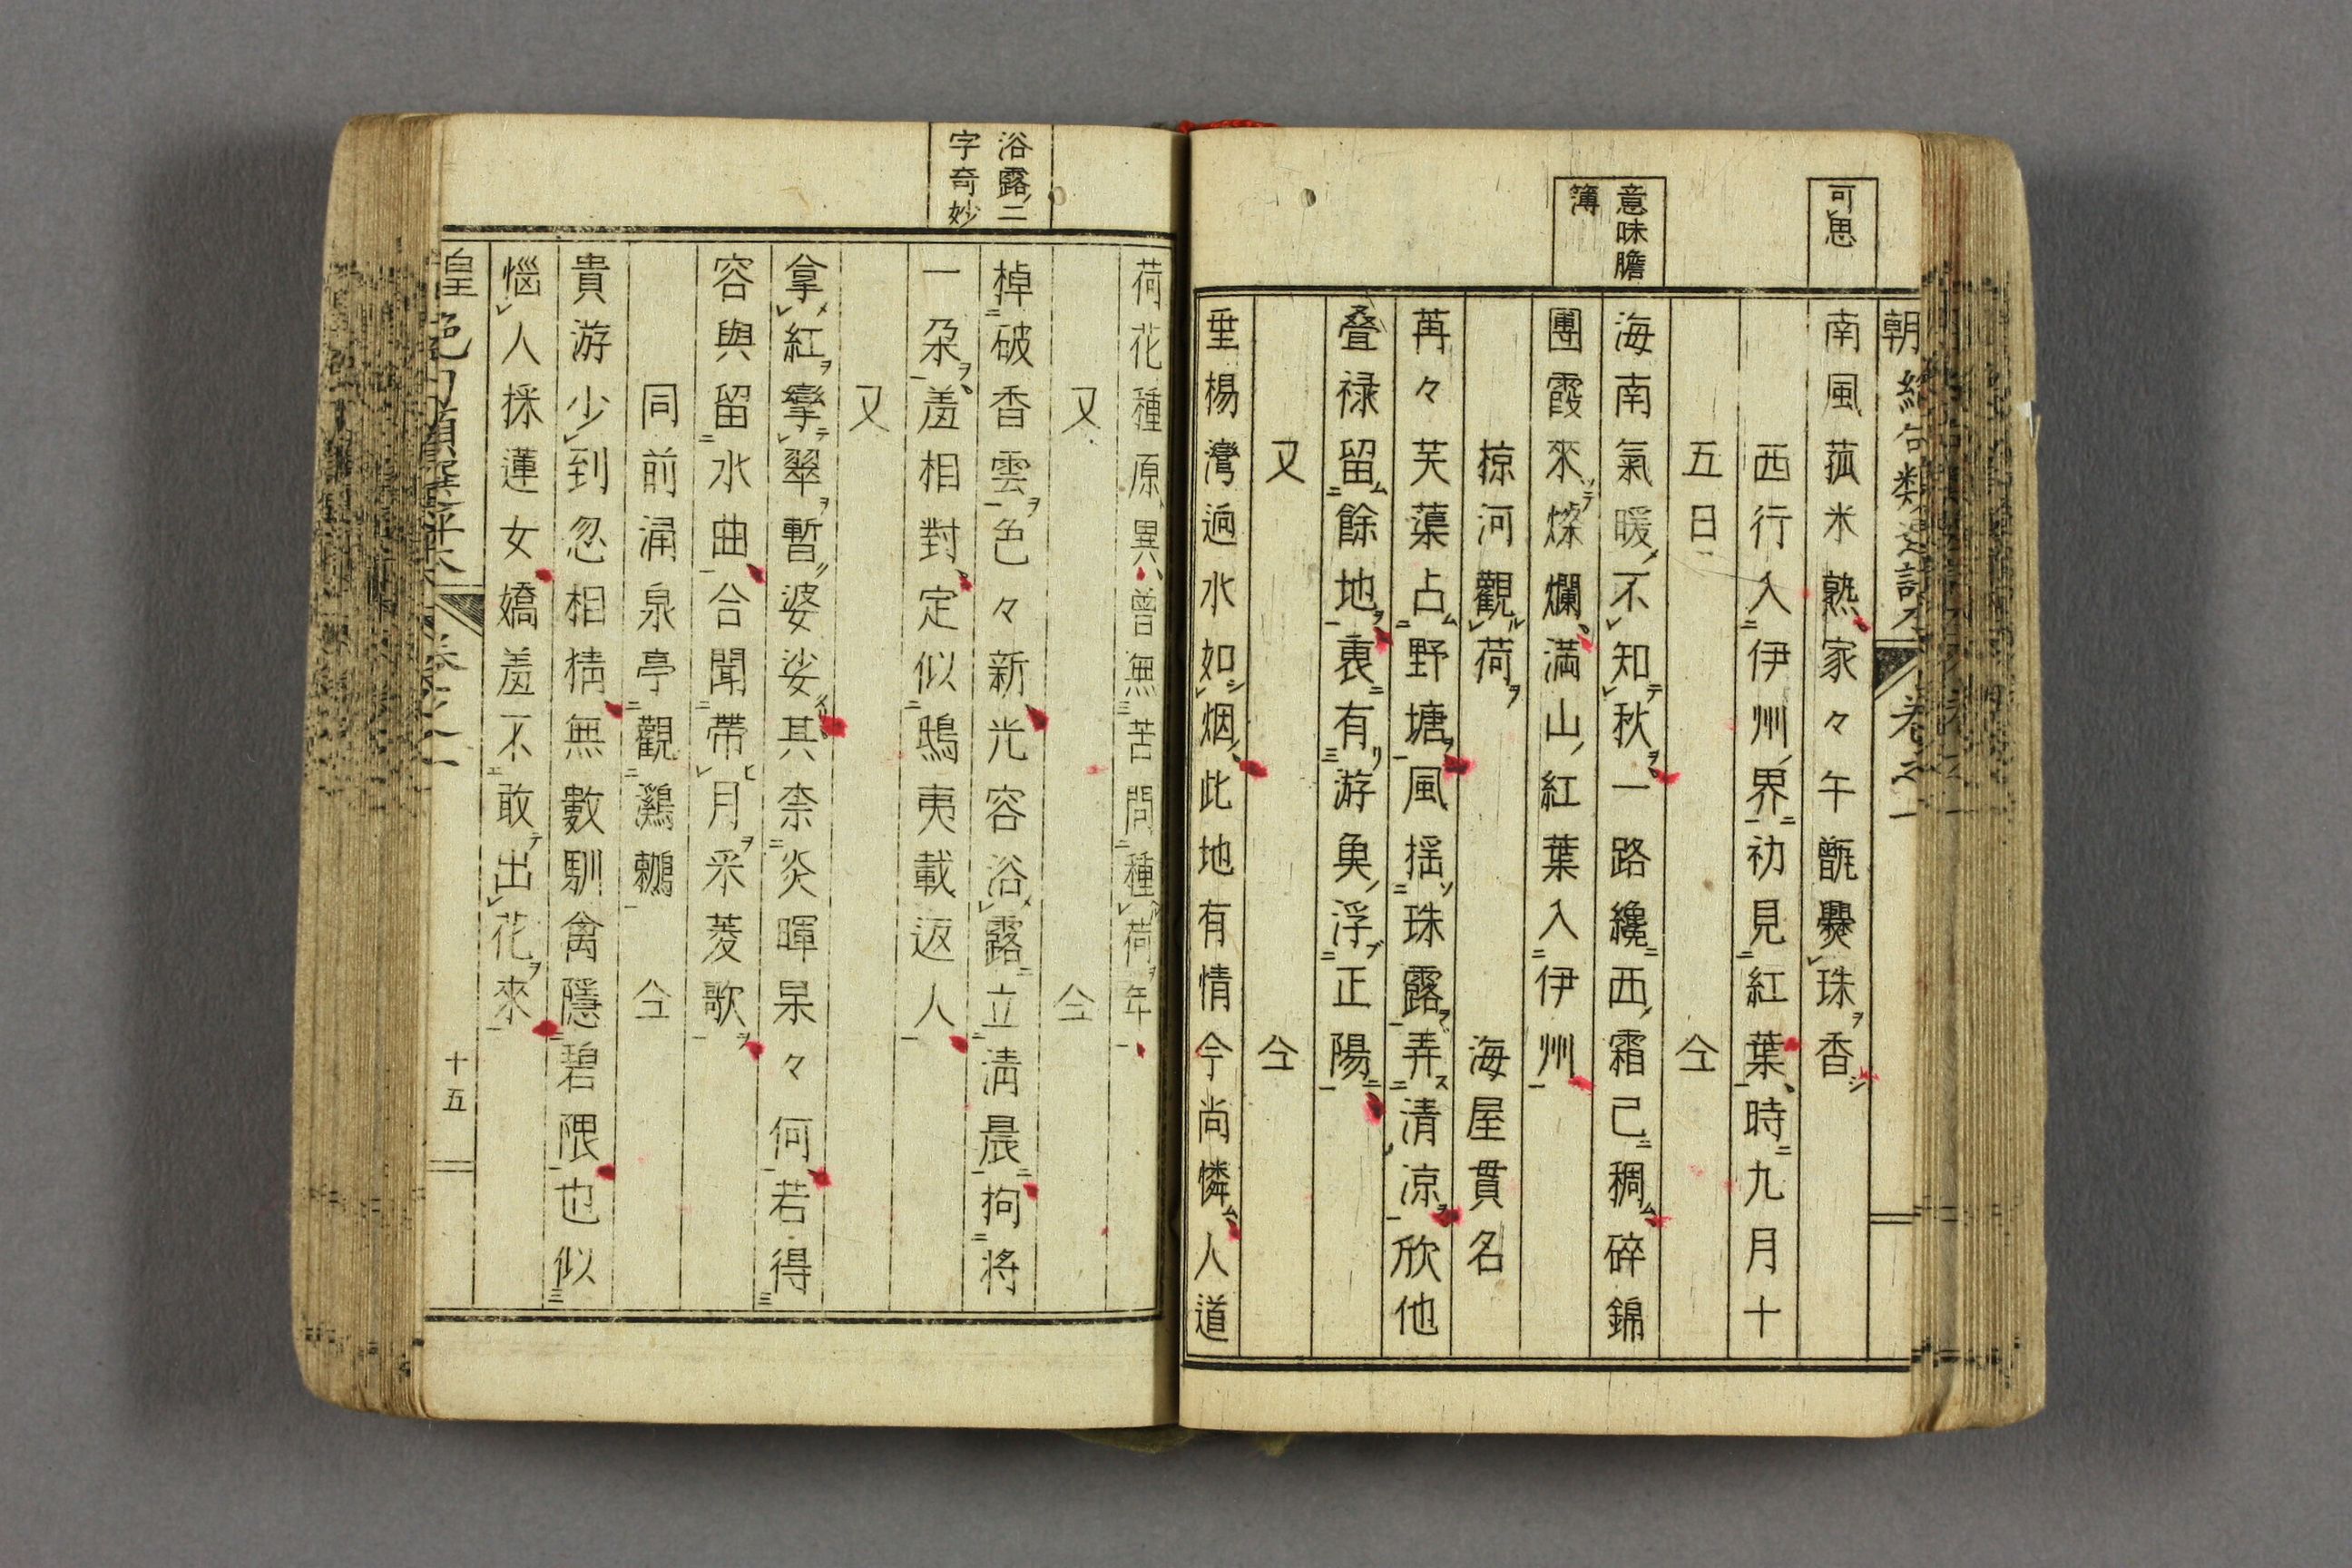 可思
意味膽
簿
南風菰米熟家々午甑爨珠香
西行入伊州界初見紅葉時九月十
五日 仝
海南氣暖不知秋一路纔西霜已稠碎錦
團霞來燦爛満山紅葉入伊州
掠河觀荷 海屋貫名
苒々芙蕖占野塘風揺珠露弄清凉欣他
叠禄留餘地裏有游魚浮正陽
又 仝
垂楊灣逈水如烟此地有情今尚憐人道
浴露二
字奇妙
荷花種原異曽無苦問種荷年
又 仝
棹破香雲色々新光容浴露立清晨拘将
一朶羞相對定似鴟夷載返人
又
拿紅攣翠暫婆娑其柰炎暉杲々何若得
容與留水曲合聞帶月釆菱歌
同前涌泉亭觀鸂鶒 仝
貴游少到忽相猜無數馴禽隱碧隈也似
惱人採蓮女嬌羞不敢出花來
十五